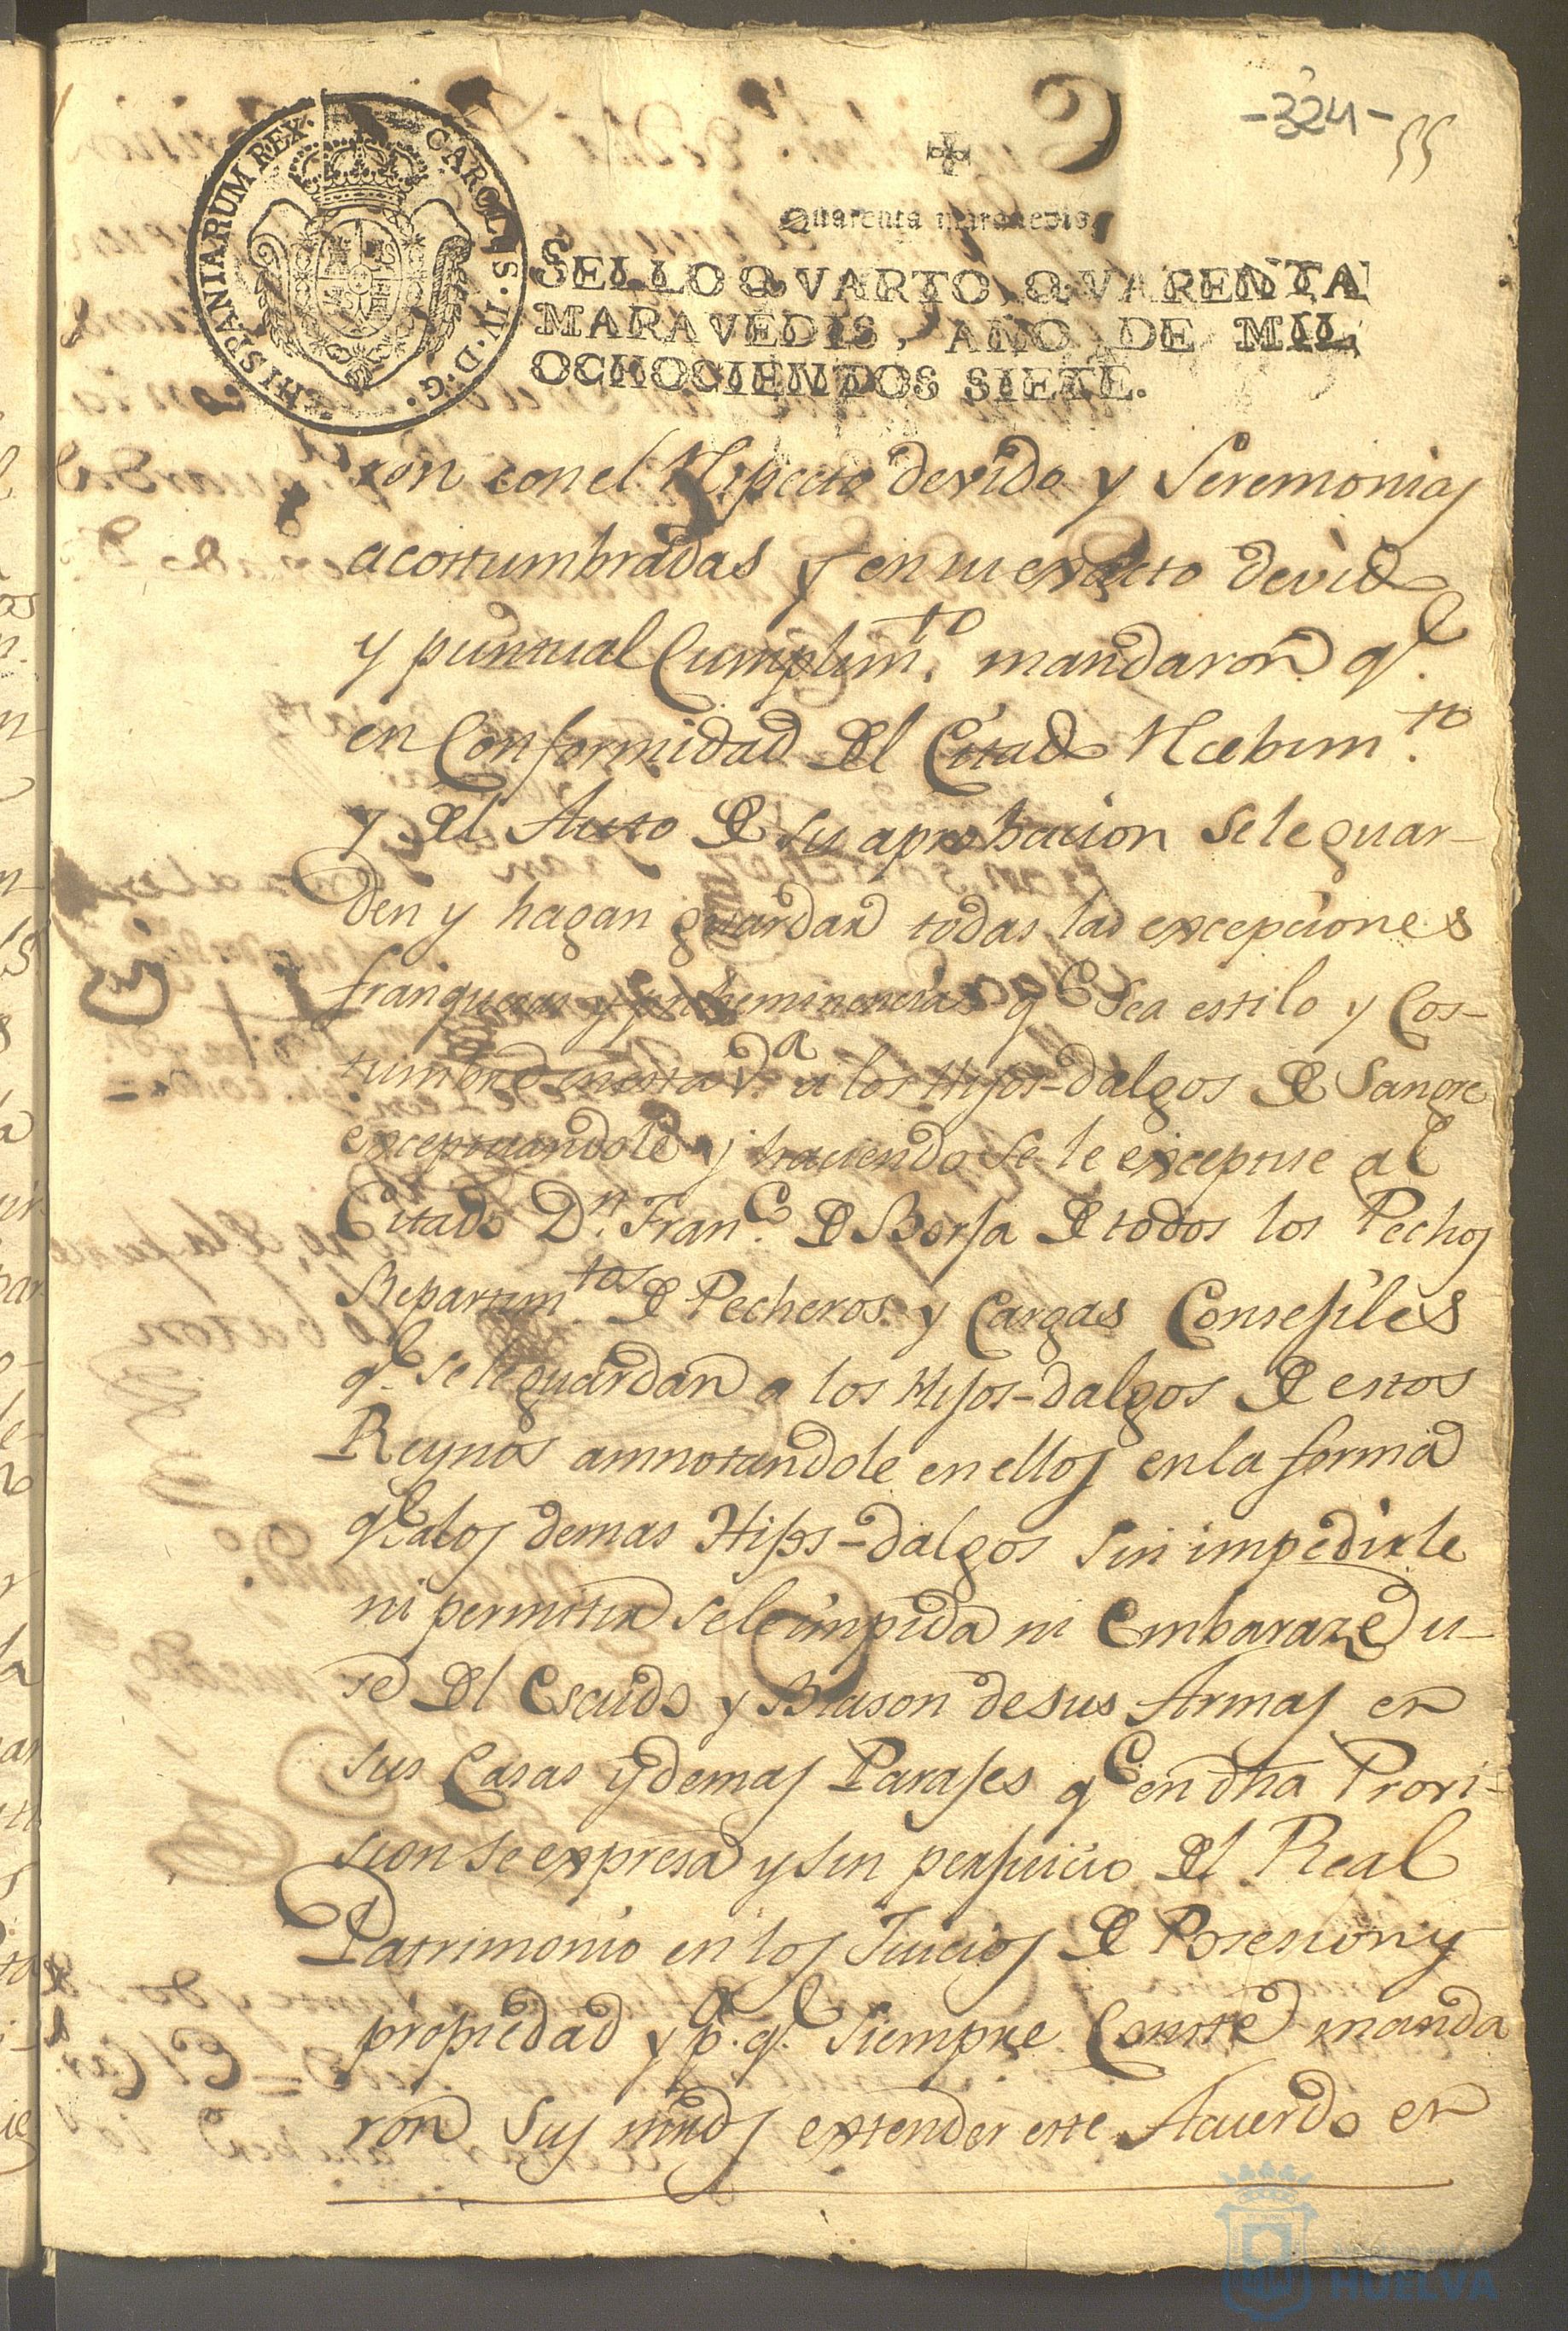 -324-
55
Quarenta maravedis.
CAROLUS·IV·D·G·HISPANIARUM REX·
SELLO QVARTO, QVARENTA
MARAVEDIS, AÑO DE MIL
OCHOCIENTOS SIETE.
ron con el Respecto devido y Seremonias
acostumbradas y en su exacto devido
y puntual Cumplimto. mandaron qe.
en Conformidad del Citado Recebimto.
y del Auto de su aprobacion se le guar-
den y hagan guardar todas las excepciones
franquezas y preheminencias qe sea estilo y Cos-
tumbre en esta va a los Hijos-dalgos de Sangre
exceptuandole y haciendo se le exceptue al
Citado Dn. Franco. de Borja de todos los Pechos
Repartimtos de Pecheros y Cargas Consejiles
qe se le guardan a los Hijos-dalgos de estos
Reynos amnotandole en ellos en la forma
qe a los demas Hijos-dalgos sin impedirle
ni permitir se le impida ni embaraze u-
se del Escudo y Blason de sus Armas en
sus Casas y demas Parajes qe en dha Provi-
sion se expresa y sin perjuicio del Real
Patrimonio en los Juicios de Posesion y
propiedad y pa. qe. siempre Conste manda
ron sus mrds extender este Acuerdo en
HUELVA